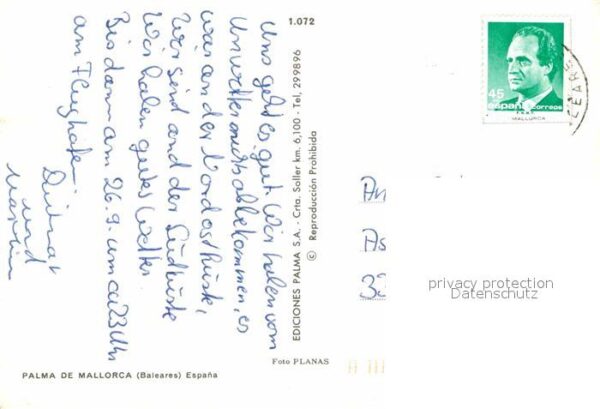 1.072
Uns geht es gut. Wir haben vom
Unwetter nichts abbekommen, es
war an der Nordostküste,
Wir sind auf der Südküste
Wir haben gutes Wetter.
Bis dann am 26.9. um ca 23 Uhr
am Flughafen
und
EDICIONES PALMA S.A. - Crta. Soller km. 6,100 - Tel. 299896
© Reproducción Prohibida
45
españa correos
MALLORCA
An
As
32
privacy protection
Datenschutz
Foto PLANAS
PALMA DE MALLORCA (Baleares) España